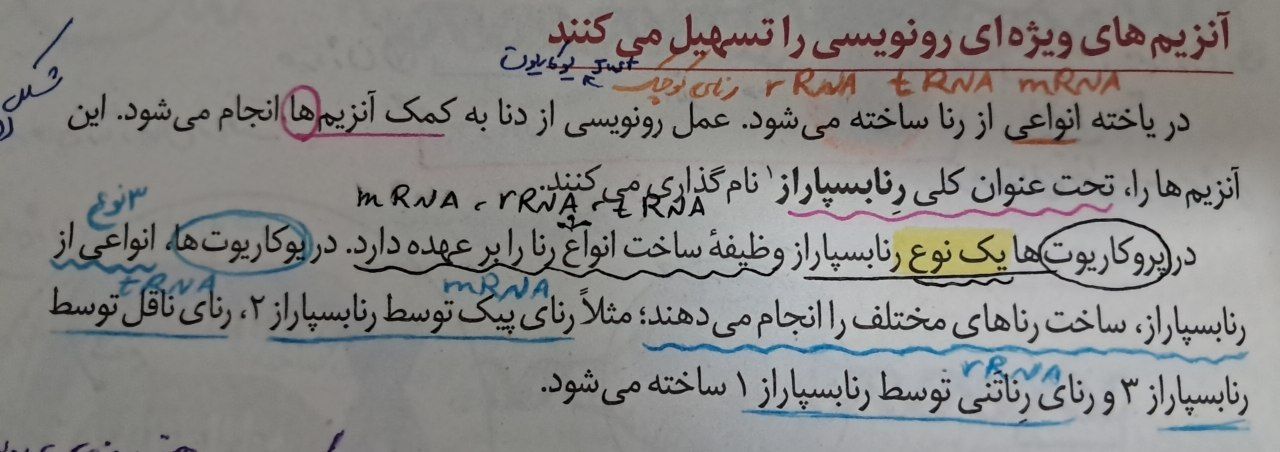 آنزیم های ویژه ای رونویسی را تسهیل می کنند
Just یوکاریوت
mRNA tRNA rRNA رنای کوچک
در یاخته انواعی از رنا ساخته می‌شود. عمل رونویسی از دنا به کمک آنزیم‌ها انجام می‌شود. این
آنزیم‌ها را، تحت عنوان کلی رِنابسپاراز۱ نام‌گذاری می‌کنند.
mRNA ، rRNA ، tRNA
۳ نوع
در پروکاریوت‌ها یک نوع رنابسپاراز وظیفهٔ ساخت انواع رنا را بر عهده دارد. در یوکاریوت‌ها، انواعی از
mRNA tRNA
رنابسپاراز، ساخت رناهای مختلف را انجام می‌دهند؛ مثلاً رنای پیک توسط رنابسپاراز ۲، رنای ناقل توسط
rRNA
رنابسپاراز ۳ و رنای رِناتَنی توسط رنابسپاراز ۱ ساخته می‌شود.
شکل